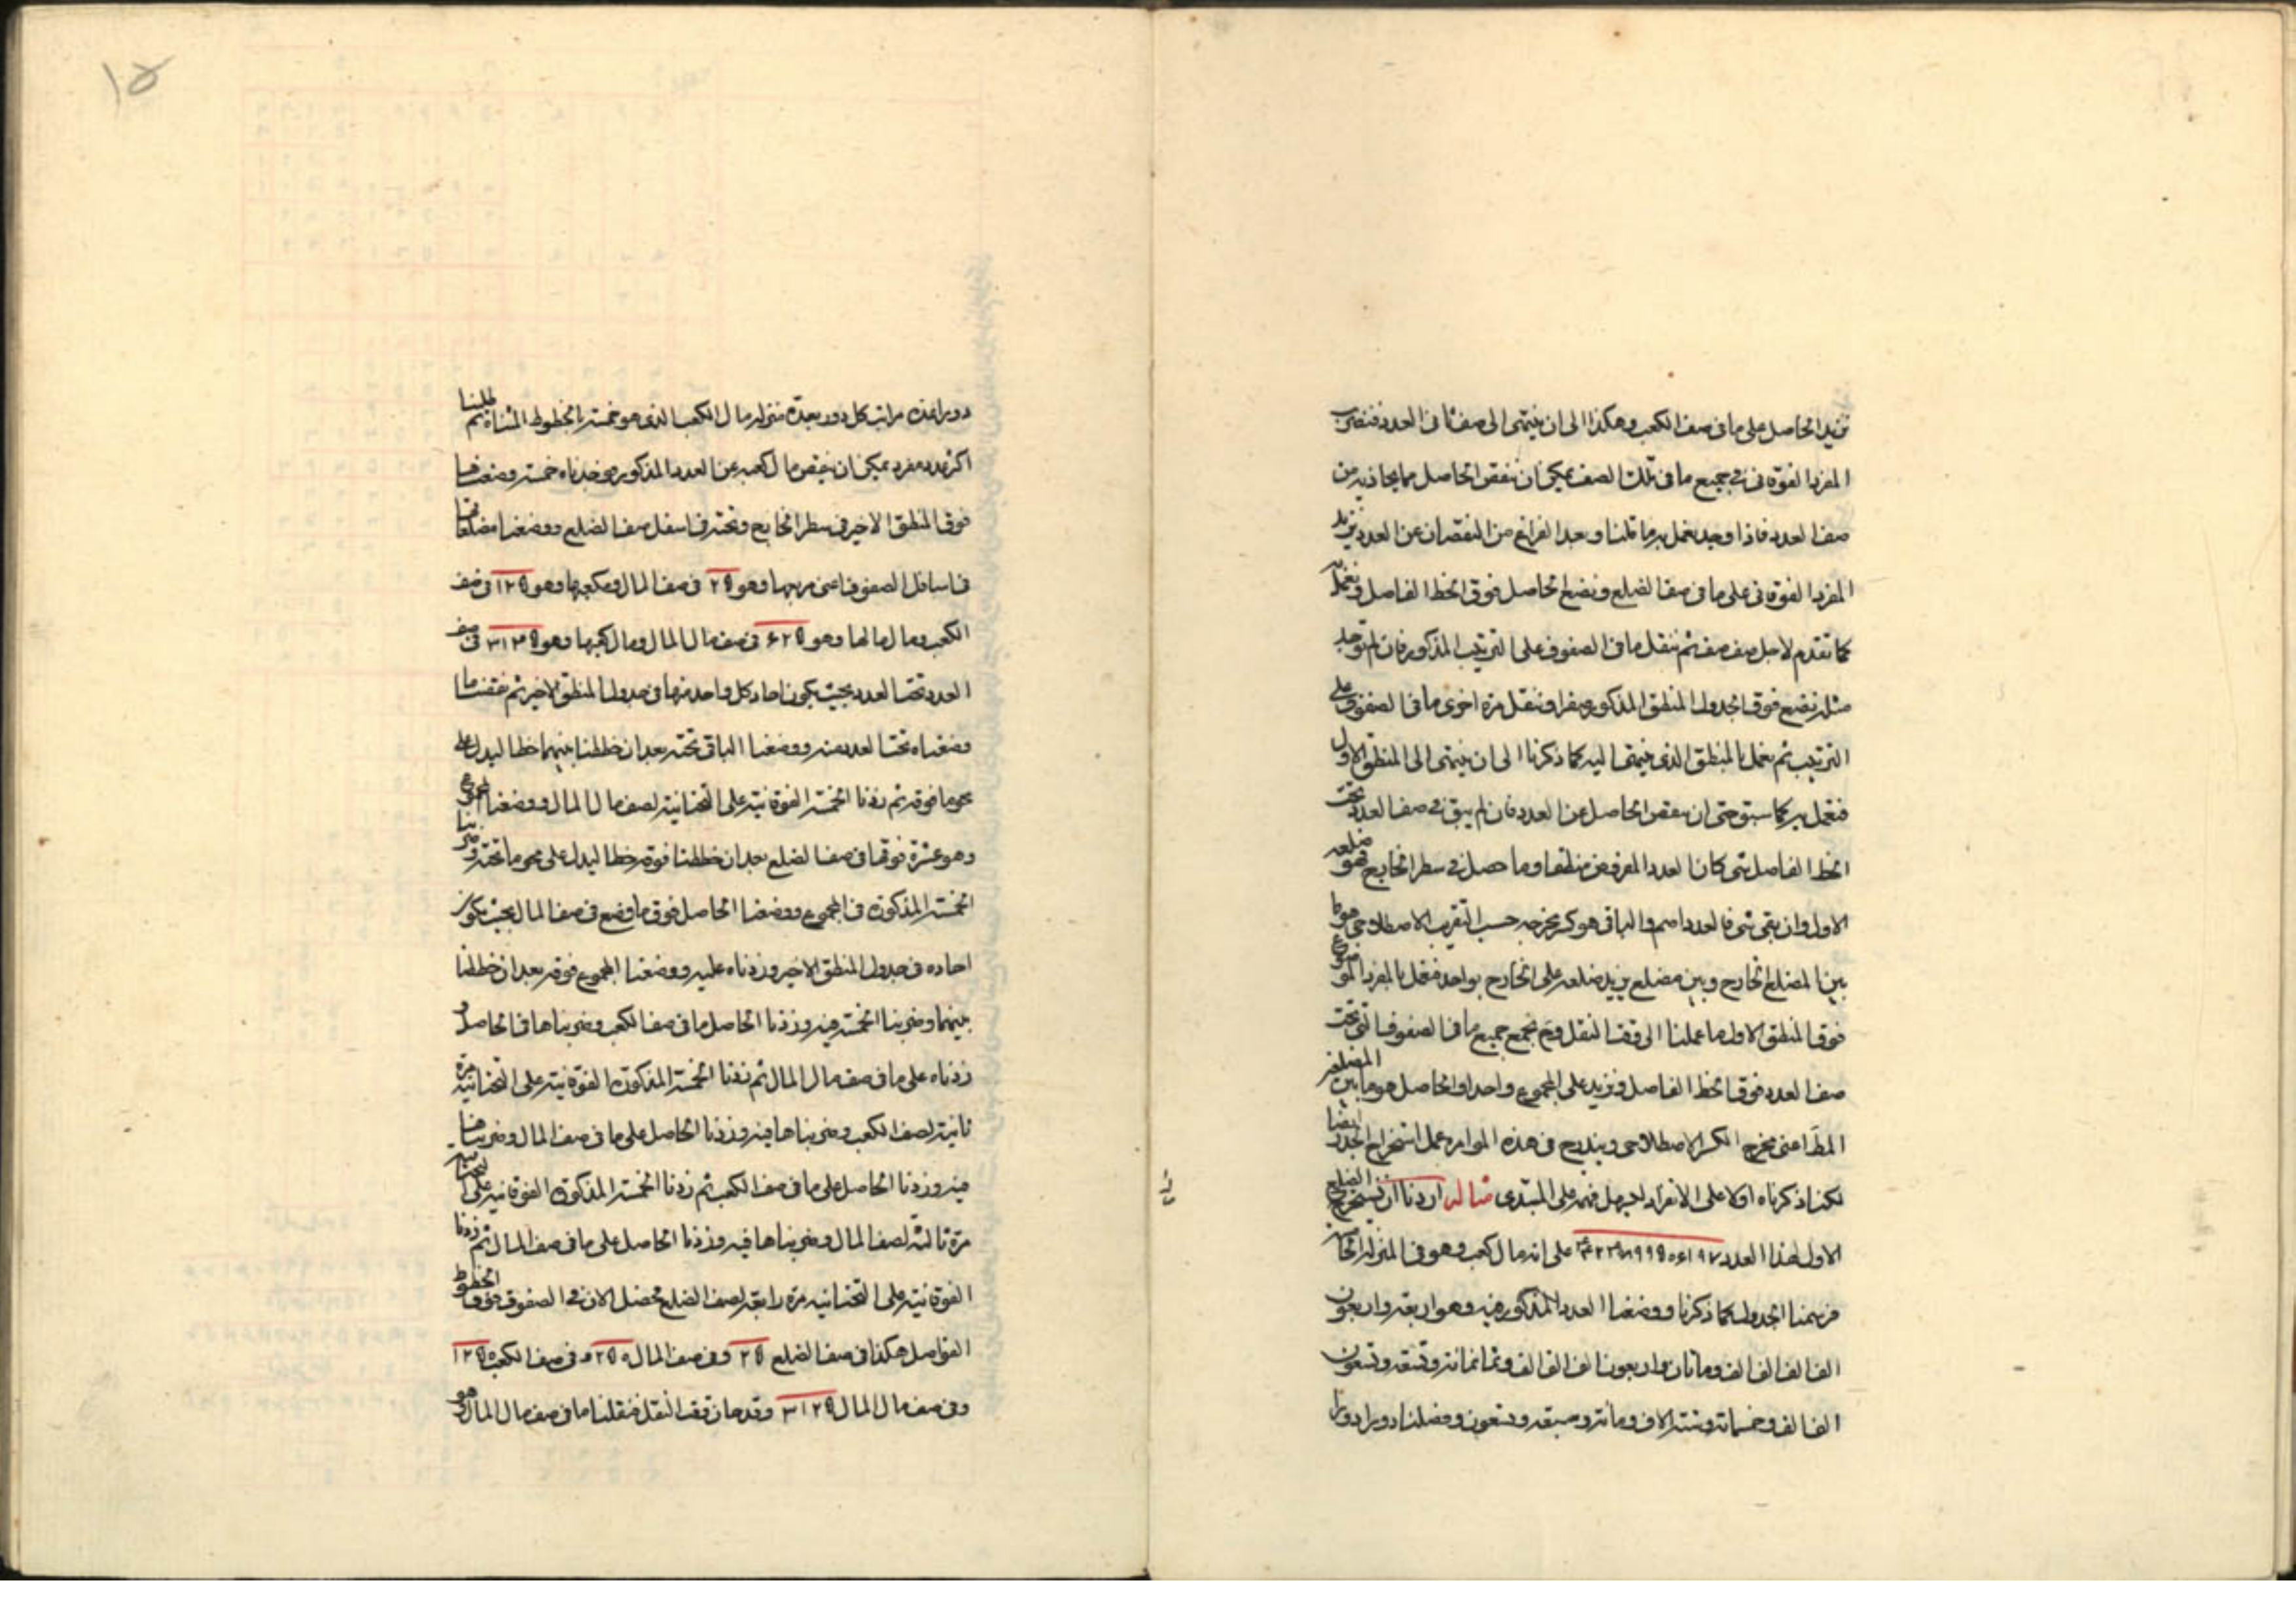 نزيد الحاصل على ما فى صف الكعب وهكذا الى ان ينتهى الى صف ثانى العدد فنضرب
المفرد الفوقانى فى جميع ما فى تلك الصف يمكن ان ننقص الحاصل مما يحاذيه من
صف العدد فاذا وجد نعمل به ما قلنا وبعد الفراغ من النقصان عن العدد نزيد
المفرد الفوقانى على ما فى صف الضلع ونضع الحاصل فوق الخط الفاصل ونعمل
كما تقدم لاجل صف صف ثم ننقل ما فى الصفوف على الترتيب المذكور فان لم توجد
مثله نضع فوق الجدول المنطق المذكور صفرا وننقل مرة اخرى ما فى الصفوف على
الترتيب ثم نعمل بالمنطق الذى ينتهى اليه كما ذكرنا الى ان ينتهى الى المنطق الاول
فنعمل به كما سبق حتى ان ننقص الحاصل عن العدد فان لم يبق فى صف العدد تحت
الخط الفاصل شى كان العدد المفروض منطقا وما حصل فى سطر الخارج فهو ضلعه
الاول وان بقى شى فالعدد اصم والباقى هو كسر مخرجه حسب التقريب الاصطلاحى هو ما
بين المضلع الخارج وبين مضلع يزيد ضلعه على الخارج بواحد فنعمل بالمفرد الموضوع
فوق المنطق الاول ما عملنا الى وقت النقل وح نجمع جميع ما فى الصفوف التى تحت
صف العدد فوق الخط الفاصل ونزيد على المجموع واحدا والحاصل هو ما بين المضلعين
المط اعنى مخرج الكسر الاصطلاحى ويندرج فى هذه الموامره عمل استخراج الجذر ايضا
لكنا ذكرناه اولا على الانفراد ليسهل فهمه على المبتدى مثاله اردنا ان نستخرج الضلع
الاول لهذا العدد ٤٤٢٤٠٨٩٩٥٠٦١٩٧ على انه مال كعب وهو فى المنزلة الخامسة
فرسمنا الجدول كما ذكرنا ووضعنا العدد المذكور فيه وهو اربعة واربعون
الف الف الف الف ومائتان واربعون الف الف الف وثمانمائة وتسعة وتسعون
الف الف وخمسمائة وستة الاف ومائة وسبعة وتسعون وفصلنا دورا دورا
١٥
دورا عدة مراتب كل دور بعدة منزلة مال الكعب الذى هو خمسة بالخطوط المثناة ثم طلبنا
اكثر عدد مفرد يمكن ان ينقص مال كعبه عن العدد المذكور فوجدناه خمسة وضعناها
فوق المنطق الاخير فى سطر الخارج وتحته فى اسفل صف الضلع ووضعنا مضلعاتها
فى اسافل الصفوف اعنى مربعها وهو ٢٥ فى صف المال ومكعبها وهو ١٢٥ فى صف
الكعب ومال مالها وهو ٦٢٥ فى صف مال المال ومال كعبها وهو ٣١٢٥ فى صف
العدد تحت العدد بحيث يكون احاد كل واحد منها فى جدول المنطق الاخير ثم نقصنا ما
وضعناه تحت العدد منه ووضعنا الباقى تحته بعد ان خططنا بينهما خطا ليدل على
محو ما فوقه ثم زدنا الخمسة الفوقانية على التحتانية لصف مال المال ووضعنا المجموع
وهو عشرة فوقها فى صف الضلع بعد ان خططنا فوقه خطا ليدل على محو ما تحته وضربنا
الخمسة المذكورة فى المجموع ووضعنا الحاصل فوق ما وضع فى صف المال بحيث يكون
احاده فى جدول المنطق الاخير وزدناه عليه ووضعنا المجموع فوقه بعد ان خططنا
بينهما وضربنا الخمسة فيه وزدنا الحاصل ما فى صف الكعب وضربناها فى الحاصل و
زدناه على ما فى صف مال المال ثم زدنا الخمسة المذكورة الفوقانية على التحتانية مرة
ثانية لصف الكعب وضربناها فيه وزدنا الحاصل على ما فى صف المال وضربناها
فيه وزدنا الحاصل على ما فى صف الكعب ثم زدنا الخمسة المذكورة الفوقانية على التحتانية
مرة ثالثة لصف المال وضربناها فيه وزدنا الحاصل على ما فى صف المال ثم زدنا
الفوقانية على التحتانية مرة رابعة لصف الضلع فحصل الان فى الصفوف فوق الخطوط
الفواصل هكذا فى صف الضلع ٢٥ وفى صف المال ٢٥٠ وفى صف الكعب ١٢٥٠
وفى صف مال المال ٣١٢٥ وقد حان وقت النقل فنقلنا ما فى صف مال المال وهو